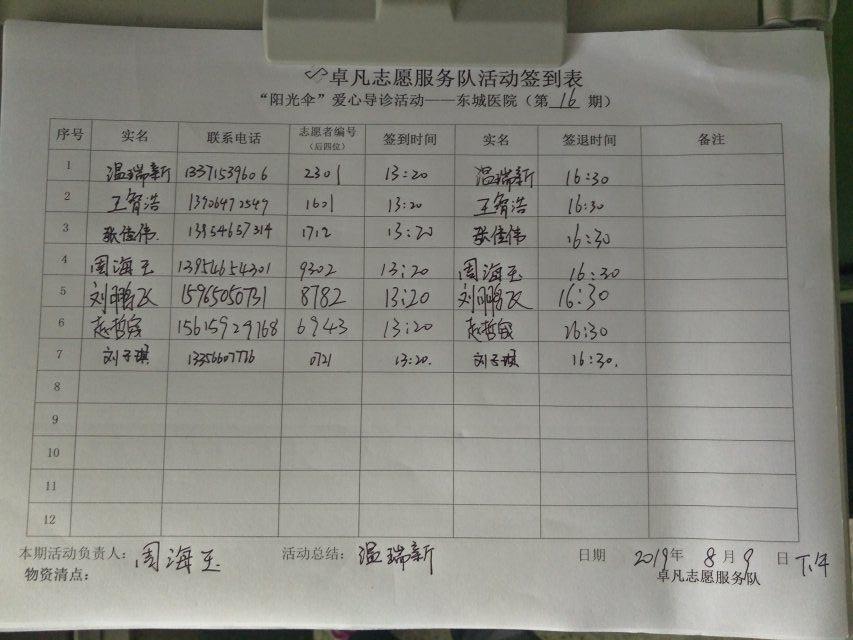 卓凡志愿服务队活动签到表
“阳光伞”爱心导诊活动——东城医院（第 16 期）
序号 实名 联系电话 志愿者编号（后四位） 签到时间 实名 签退时间 备注
1 温瑞新 13371539606 2301 13:20 温瑞新 16:30
2 王智浩 13906472549 1601 13:20 王智浩 16:30
3 张佳伟 13954657314 1712 13:20 张佳伟 16:30
4 周海玉 13954654301 9302 13:20 周海玉 16:30
5 刘鹏飞 15965050731 8782 13:20 刘鹏飞 16:30
6 赵哲毅 15615929168 6943 13:20 赵哲毅 16:30
7 刘子琪 13356607776 0721 13:20. 刘子琪 16:30.
8
9
10
11
12
本期活动负责人：周海玉 活动总结：温瑞新 日期 2019年 8月9日 下午
物资清点： 卓凡志愿服务队